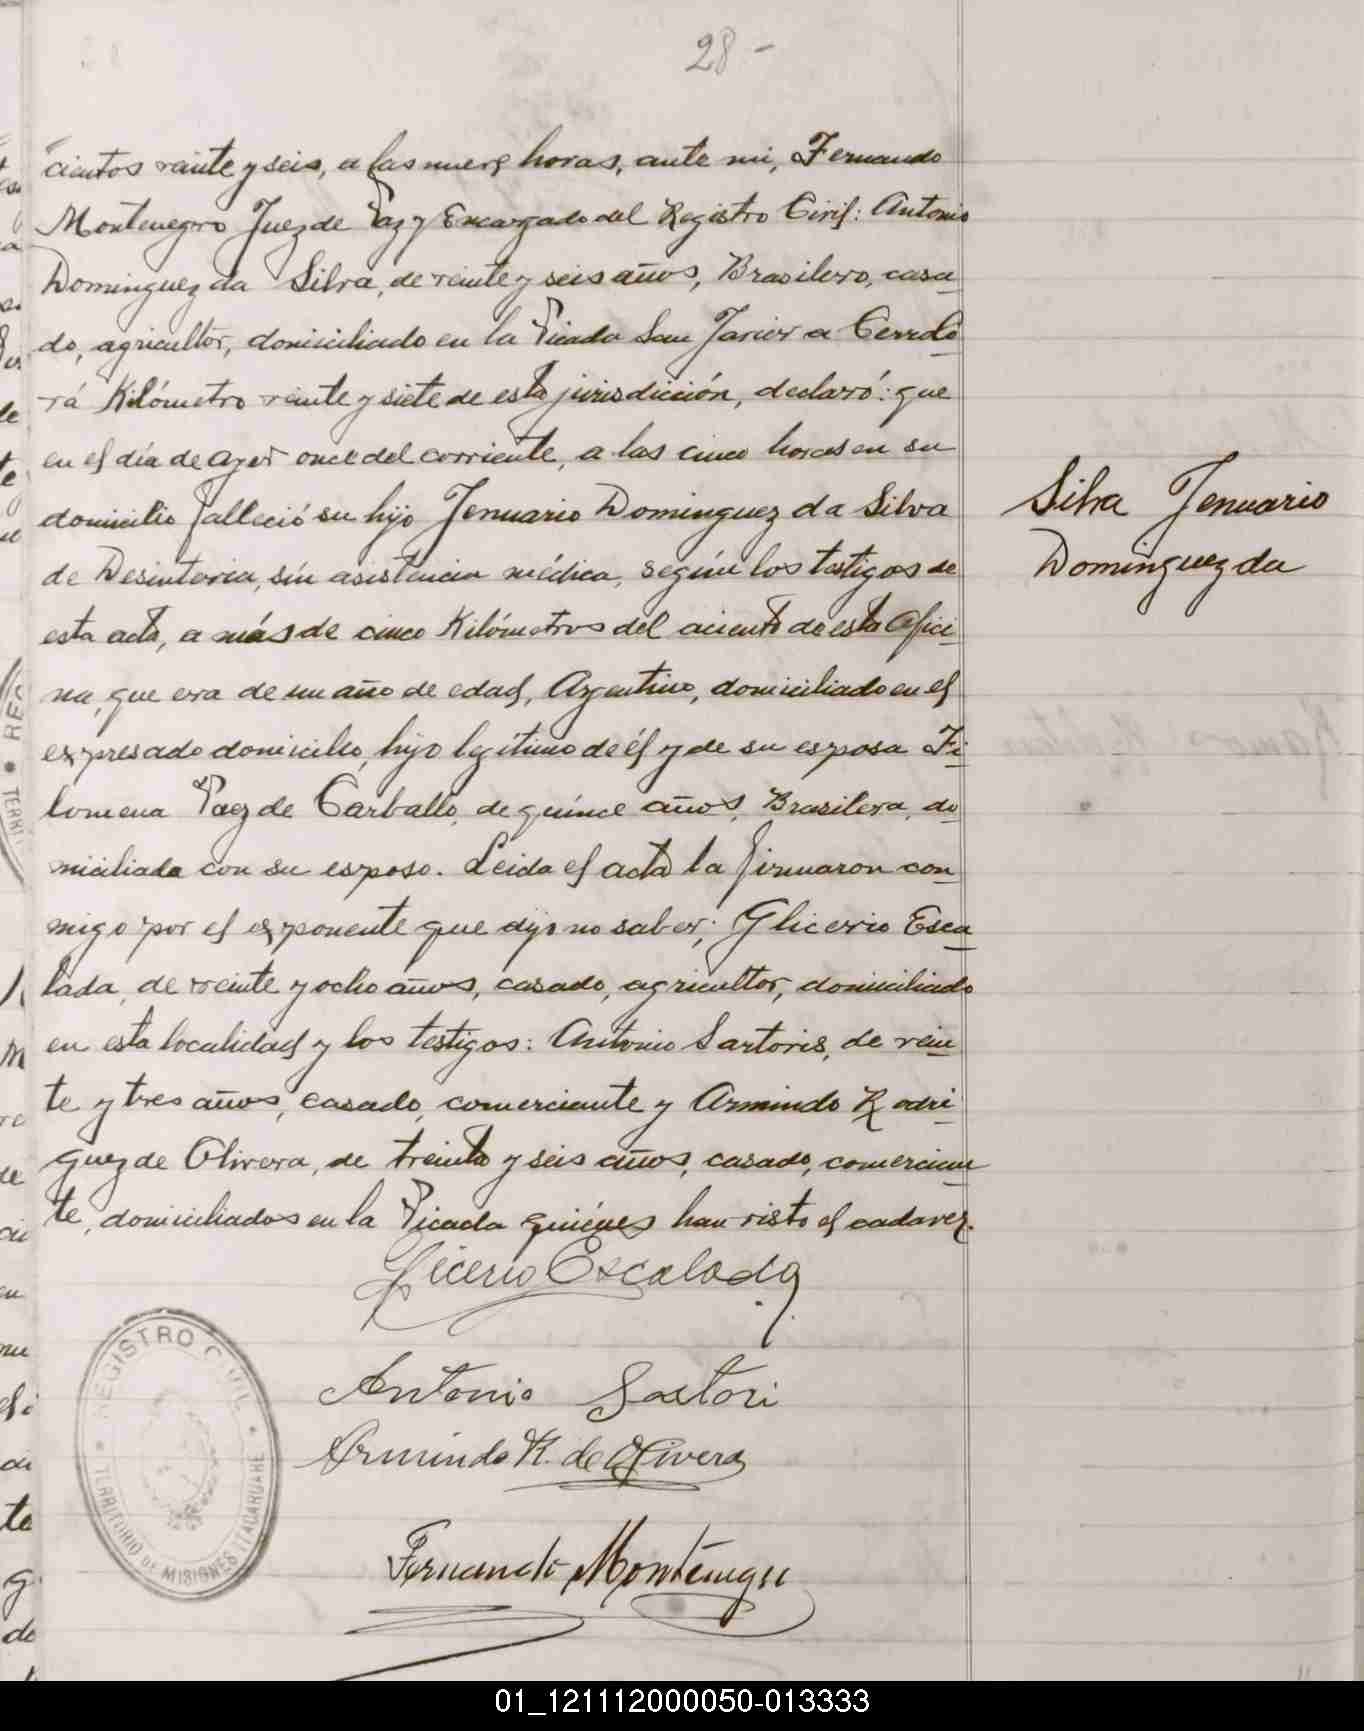 28-
cientos veinte y seis, a las nueve horas, ante mi, Fernando
Montenegro Juez de Paz y Encargado del Registro Civil: Antonio
Dominguez da Silva, de veinte y seis años, Brasilero, casa-
do, agricultor, domiciliado en la Picada San Javier a Cerro Co-
rá Kilómetro veinte y siete de esta jurisdicción, declaró: que
en el día de ayer once del corriente, a las cinco horas en su
domicilio falleció su hijo Jenuario Dominguez da Silva
de Desinteria, sin asistencia médica, según los testigos de
esta acta, a más de cinco Kilómetros del aciento de esta Ofici-
na, que era de un año de edad, Argentino, domiciliado en el
expresado domicilio, hijo legítimo de él y de su esposa Fi-
lomena Paez de Carballo, de quince años, Brasilera, do-
miciliada con su esposo. Leida el acta la firmaron con-
migo por el exponente que dijo no saber; Glicerio Esca-
lada, de veinte y ocho años, casado, agricultor, domiciliado
en esta localidad y los testigos: Antonio Sartoris, de vein-
te y tres años, casado, comerciante y Armindo Rodri-
guez de Olivera, de treinta y seis años, casado, comercian-
te, domiciliados en la Picada quiénes han visto el cadaver.
Silva Jenuario
Dominguez da
Glicerio Escalada
Antonio Sartori
Armindo R. de Olivera
Fernando Montenegro
REGISTRO CIVIL
TERRITORIO DE MISIONES ITACARUARE
01_121112000050-013333